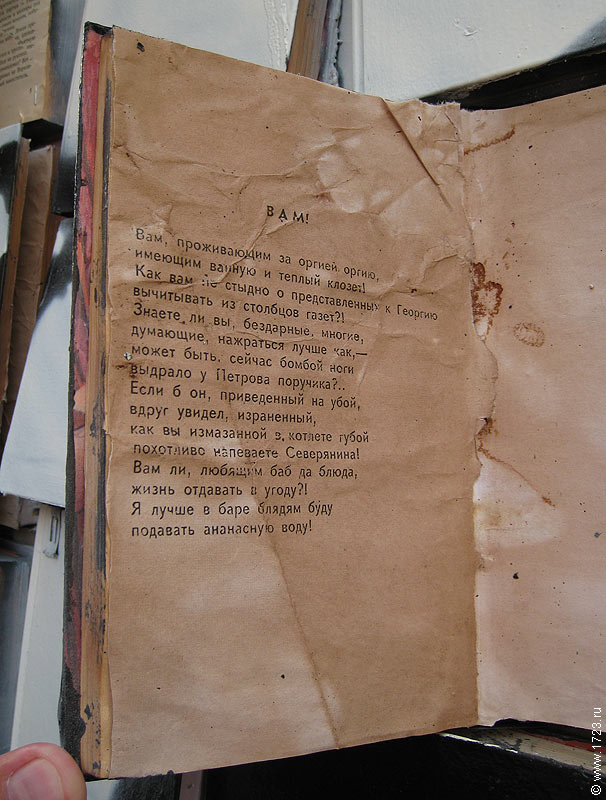 ВАМ!
Вам, проживающим за оргией оргию,
имеющим ванную и теплый клозет!
Как вам не стыдно о представленных к Георгию
вычитывать из столбцов газет?!
Знаете ли вы, бездарные, многие,
думающие, нажраться лучше как,—
может быть, сейчас бомбой ноги
выдрало у Петрова поручика?..
Если б он, приведенный на убой,
вдруг увидел, израненный,
как вы измазанной в котлете губой
похотливо напеваете Северянина!
Вам ли, любящим баб да блюда,
жизнь отдавать в угоду?!
Я лучше в баре блядям буду
подавать ананасную воду!
© www.1723.ru